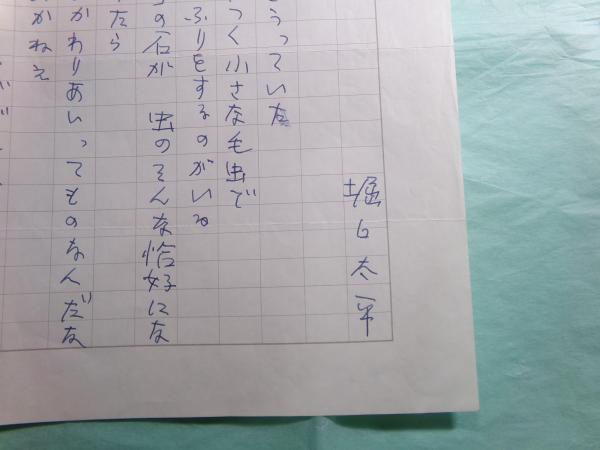 堀口太平
うっていた
つく小さな毛虫で
ふりをするのがいる
の石が 虫のそんな恰好にな
たら
かわりあいってものなんだな
かねえ